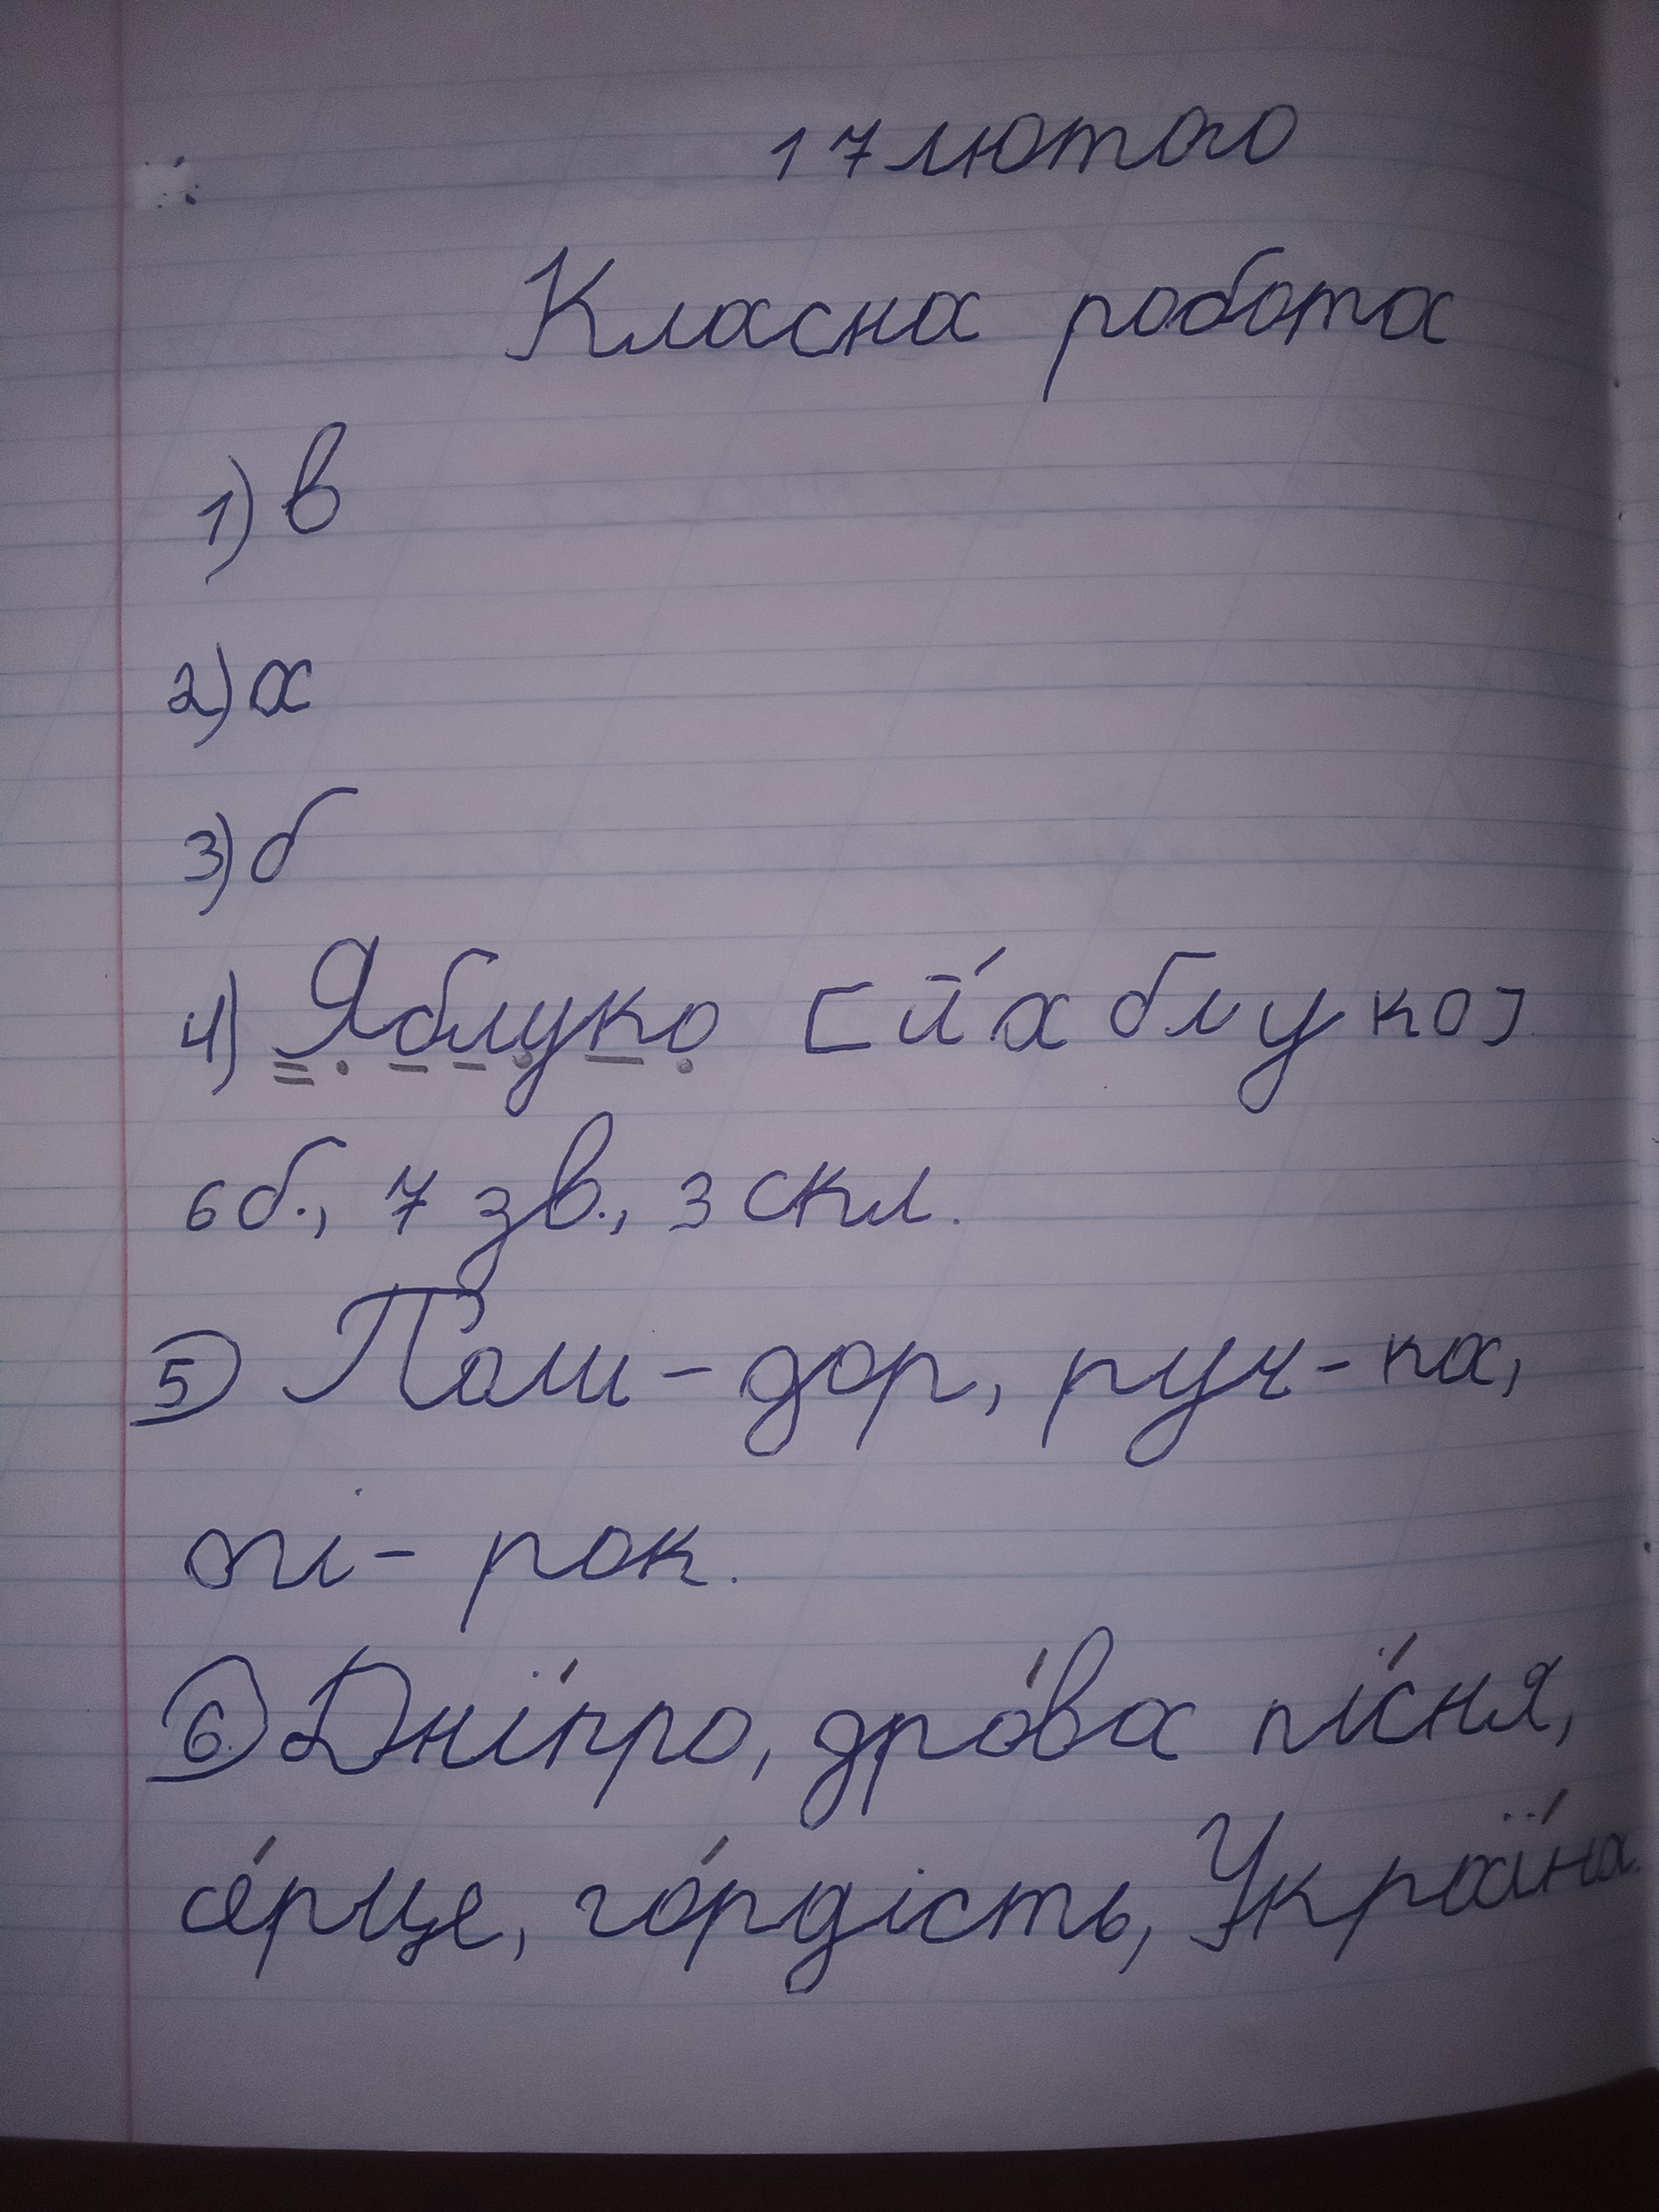 17 лютого
Класна робота
1) в
2) а
3) б
4) Яблуко [й́аблуко]
6 б., 7 зв., 3 скл.
5 Поми-дор, руч-ка,
огі-рок.
6. Дні́про, дро́ва пі́сня,
се́рце, го́рдість, Украї́на.